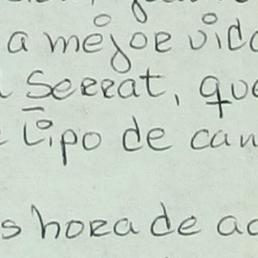 a mejor vid
Serrat, que
tipo de can
s hora de ac